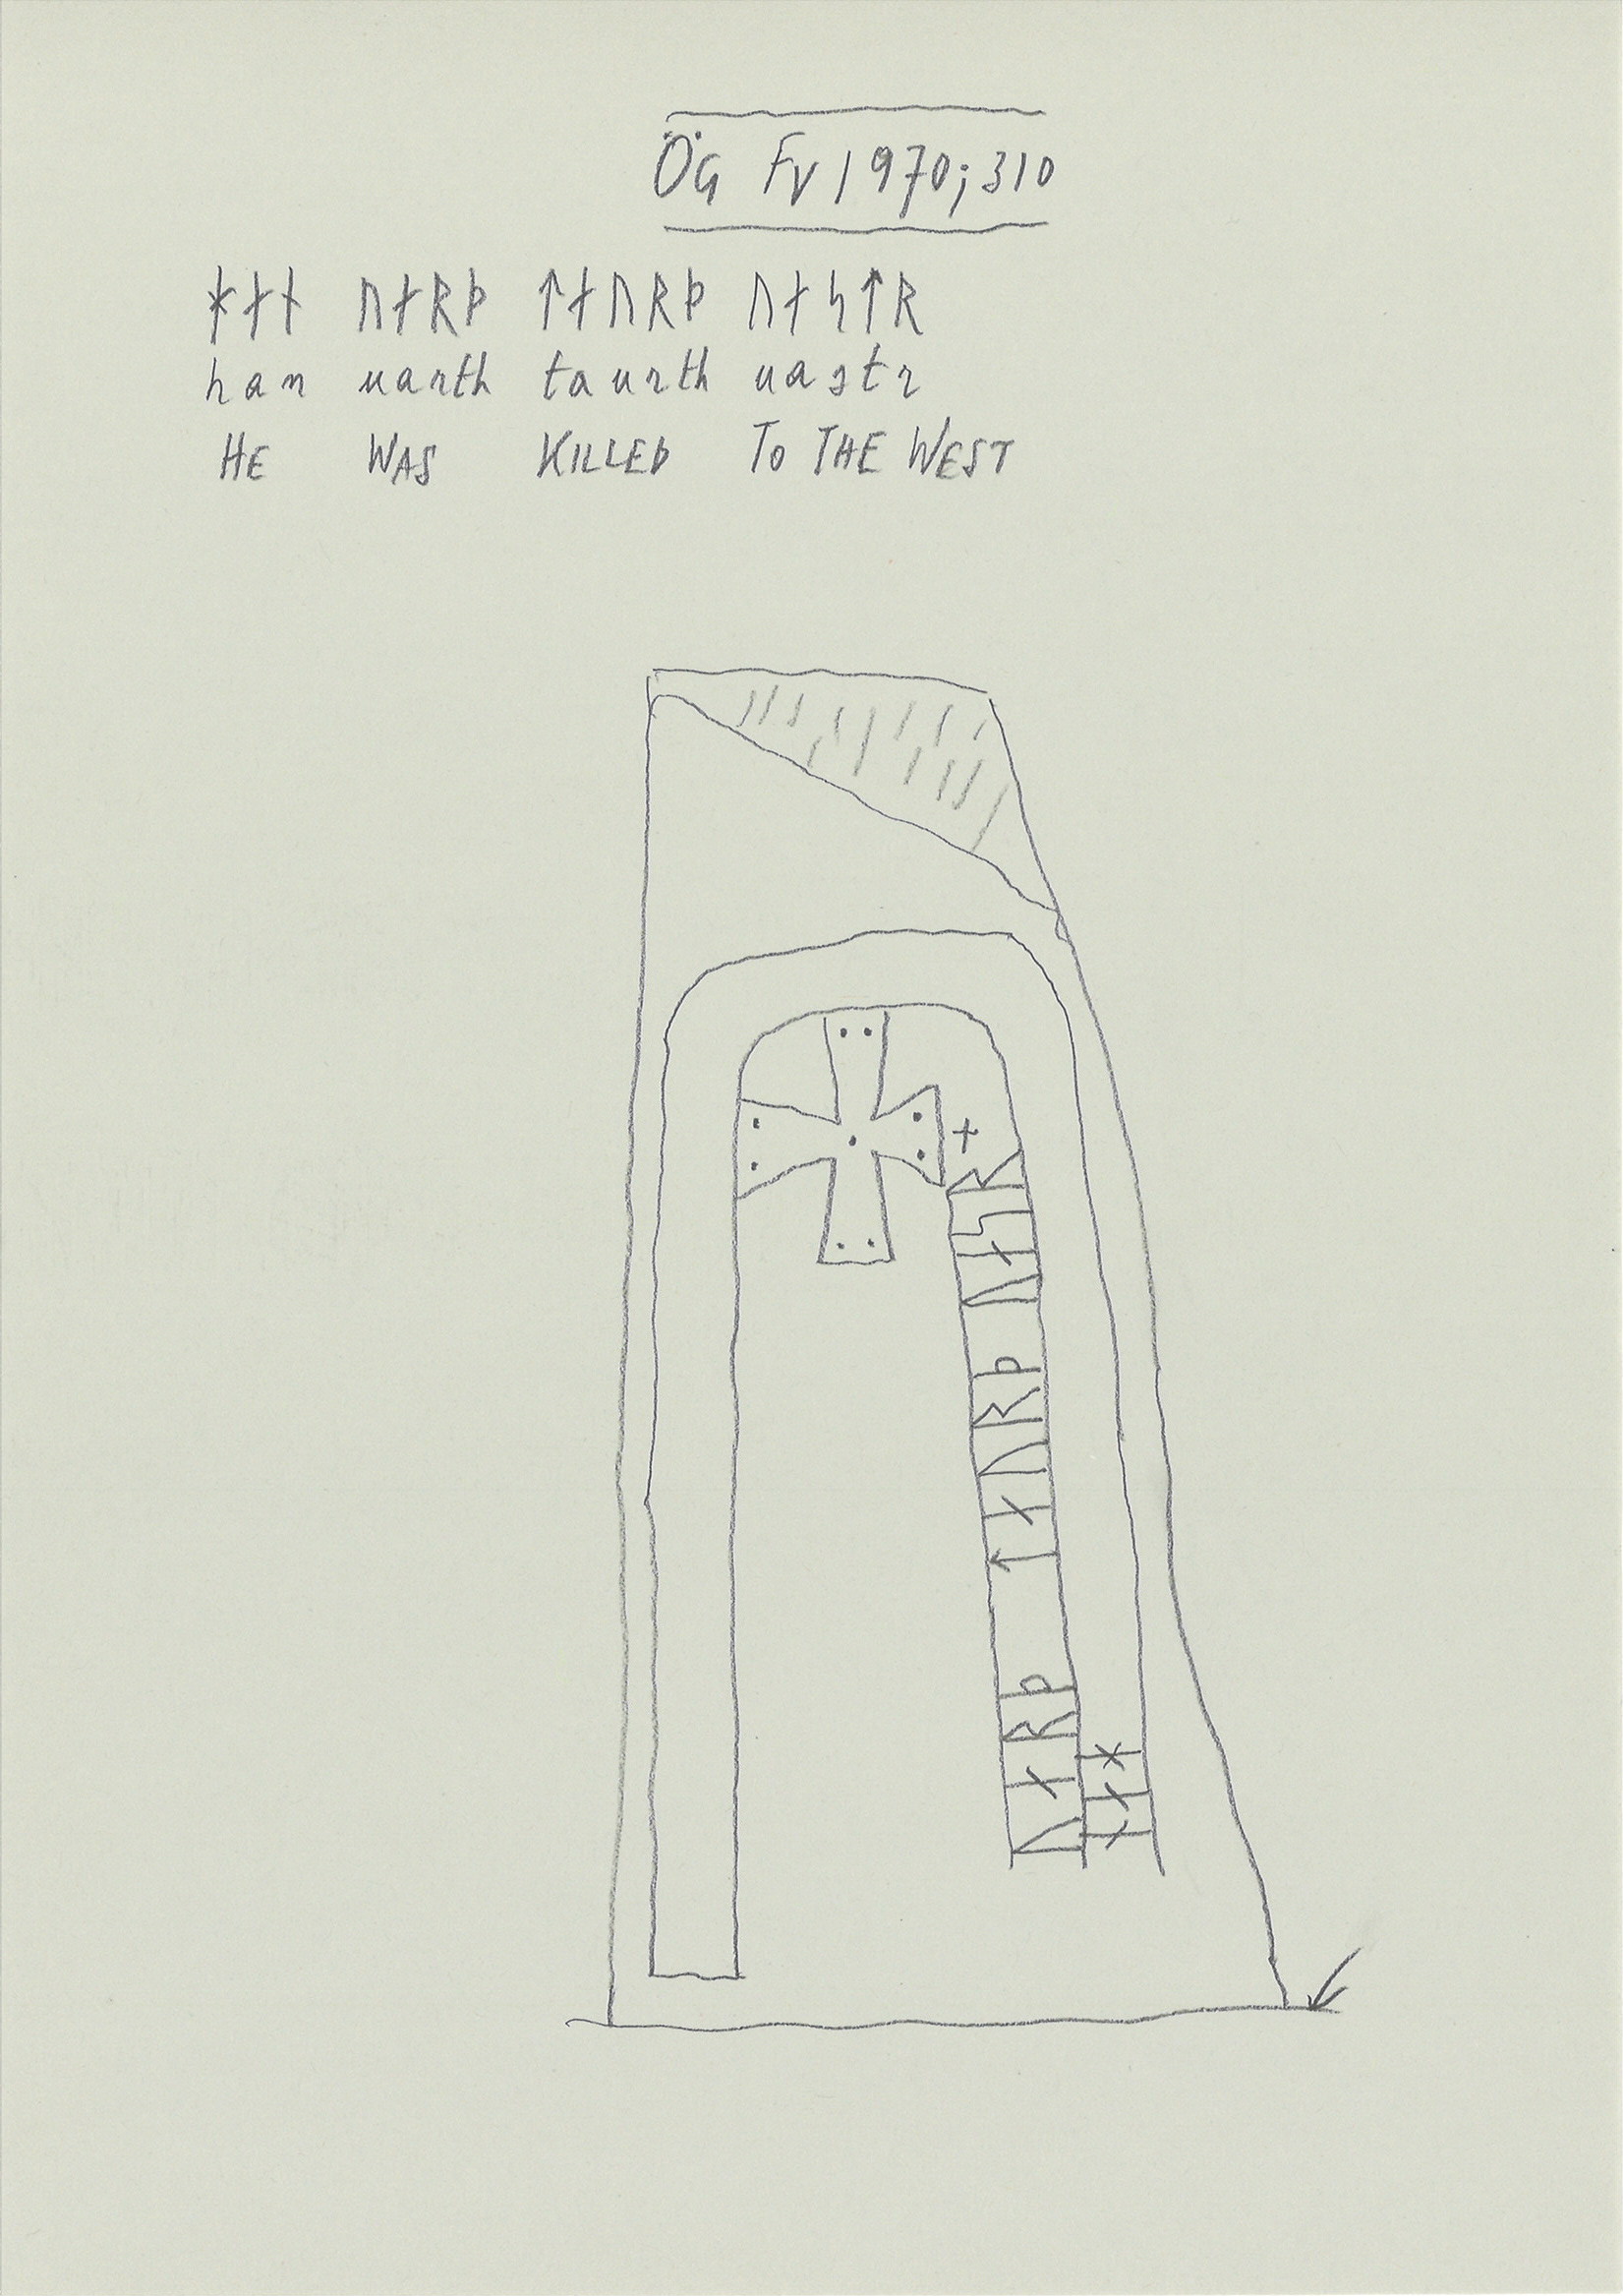 ÖG FV 1970;310
ᚼᛅᚾ ᚢᛅᚱᚦ ᛏᛅᚢᚱᚦ ᚢᛅᛋᛏᚱ
han uarth taurth uastr
HE WAS KILLED TO THE WEST
ᚼᛅᚾ
ᚢᛅᚱᚦ ᛏᛅᚢᚱᚦ ᚢᛅᛋᚱ